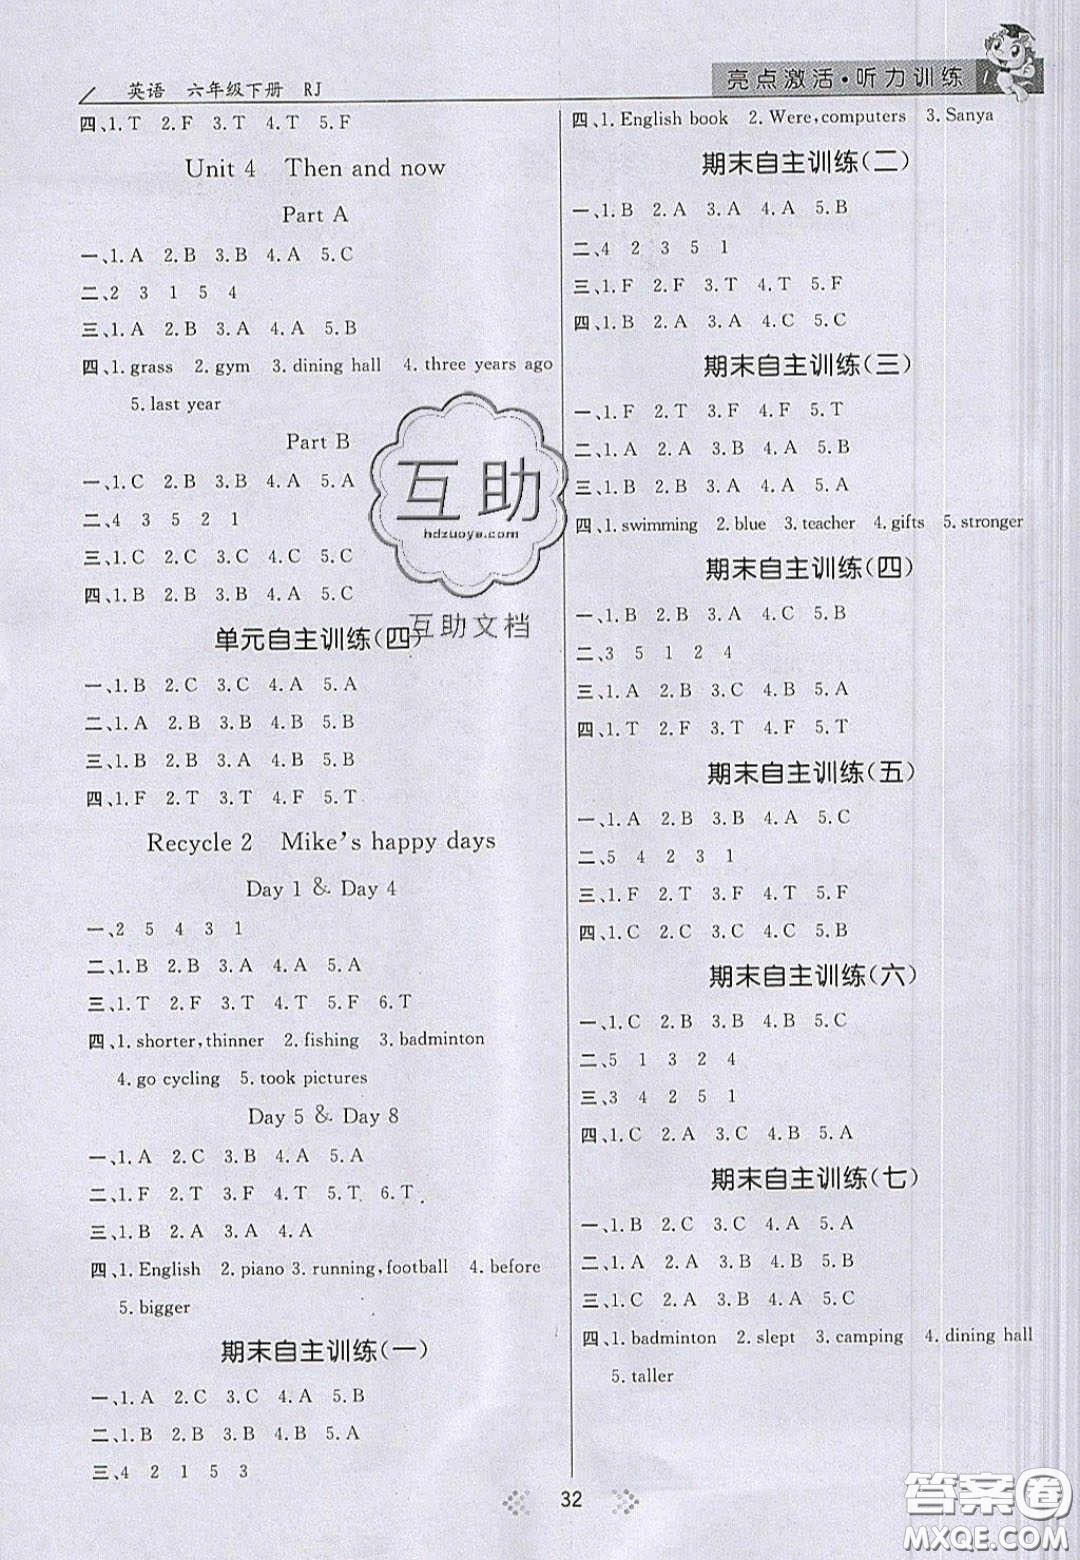 英语 六年级下册 RJ
亮点激活·听力训练
四、1. T 2. F 3. T 4. T 5. F
Unit 4 Then and now
Part A
一、1. A 2. B 3. B 4. A 5. C
二、2 3 1 5 4
三、1. A 2. B 3. A 4. A 5. B
四、1. grass 2. gym 3. dining hall 4. three years ago
5. last year
Part B
一、1. C 2. B 3. B 4. A 5. A
二、4 3 5 2 1
三、1. C 2. C 3. C 4. C 5. C
四、1. B 2. B 3. A 4. A 5. C
单元自主训练(四)
一、1. B 2. C 3. C 4. A 5. A
二、1. A 2. B 3. B 4. B 5. B
三、1. B 2. B 3. A 4. B 5. B
四、1. F 2. T 3. T 4. F 5. T
Recycle 2 Mike's happy days
Day 1 & Day 4
一、2 5 4 3 1
二、1. B 2. B 3. A 4. A 5. A
三、1. T 2. F 3. T 4. T 5. F 6. T
四、1. shorter, thinner 2. fishing 3. badminton
4. go cycling 5. took pictures
Day 5 & Day 8
一、1. A 2. C 3. B 4. A 5. A
二、1. F 2. T 3. F 4. T 5. T 6. T
三、1. B 2. A 3. A 4. A
四、1. English 2. piano 3. running, football 4. before
5. bigger
期末自主训练(一)
一、1. A 2. C 3. C 4. A 5. B
二、1. B 2. B 3. A 4. B 5. A
三、4 2 1 5 3
四、1. English book 2. Were, computers 3. Sanya
期末自主训练(二)
一、1. B 2. A 3. A 4. A 5. B
二、4 2 3 5 1
三、1. F 2. F 3. T 4. T 5. F
四、1. B 2. A 3. A 4. C 5. B
期末自主训练(三)
一、1. F 2. T 3. F 4. F 5. T
二、1. A 2. A 3. B 4. A 5. B
三、1. B 2. B 3. A 4. B 5. A
四、1. swimming 2. blue 3. teacher 4. gifts 5. stronger
期末自主训练(四)
一、1. B 2. B 3. A 4. C 5. B
二、3 5 1 2 4
三、1. A 2. B 3. C 4. B 5. A
四、1. T 2. F 3. T 4. F 5. T
期末自主训练(五)
一、1. A 2. B 3. B 4. A 5. C
二、5 4 2 3 1
三、1. F 2. T 3. F 4. T 5. F
四、1. C 2. C 3. C 4. C 5. B
期末自主训练(六)
一、1. C 2. B 3. B 4. B 5. C
二、5 1 3 2 4
三、3 4 2 5 1
四、1. C 2. A 3. C 4. B 5. A
期末自主训练(七)
一、1. B 2. C 3. C 4. A 5. A
二、1. A 2. C 3. B 4. B 5. A
三、1. C 2. A 3. B 4. A 5. C
四、1. badminton 2. slept 3. camping 4. dining hall
5. taller
32
互助
hdzuoye.com
互助文档
答案圈
MXQE.COM